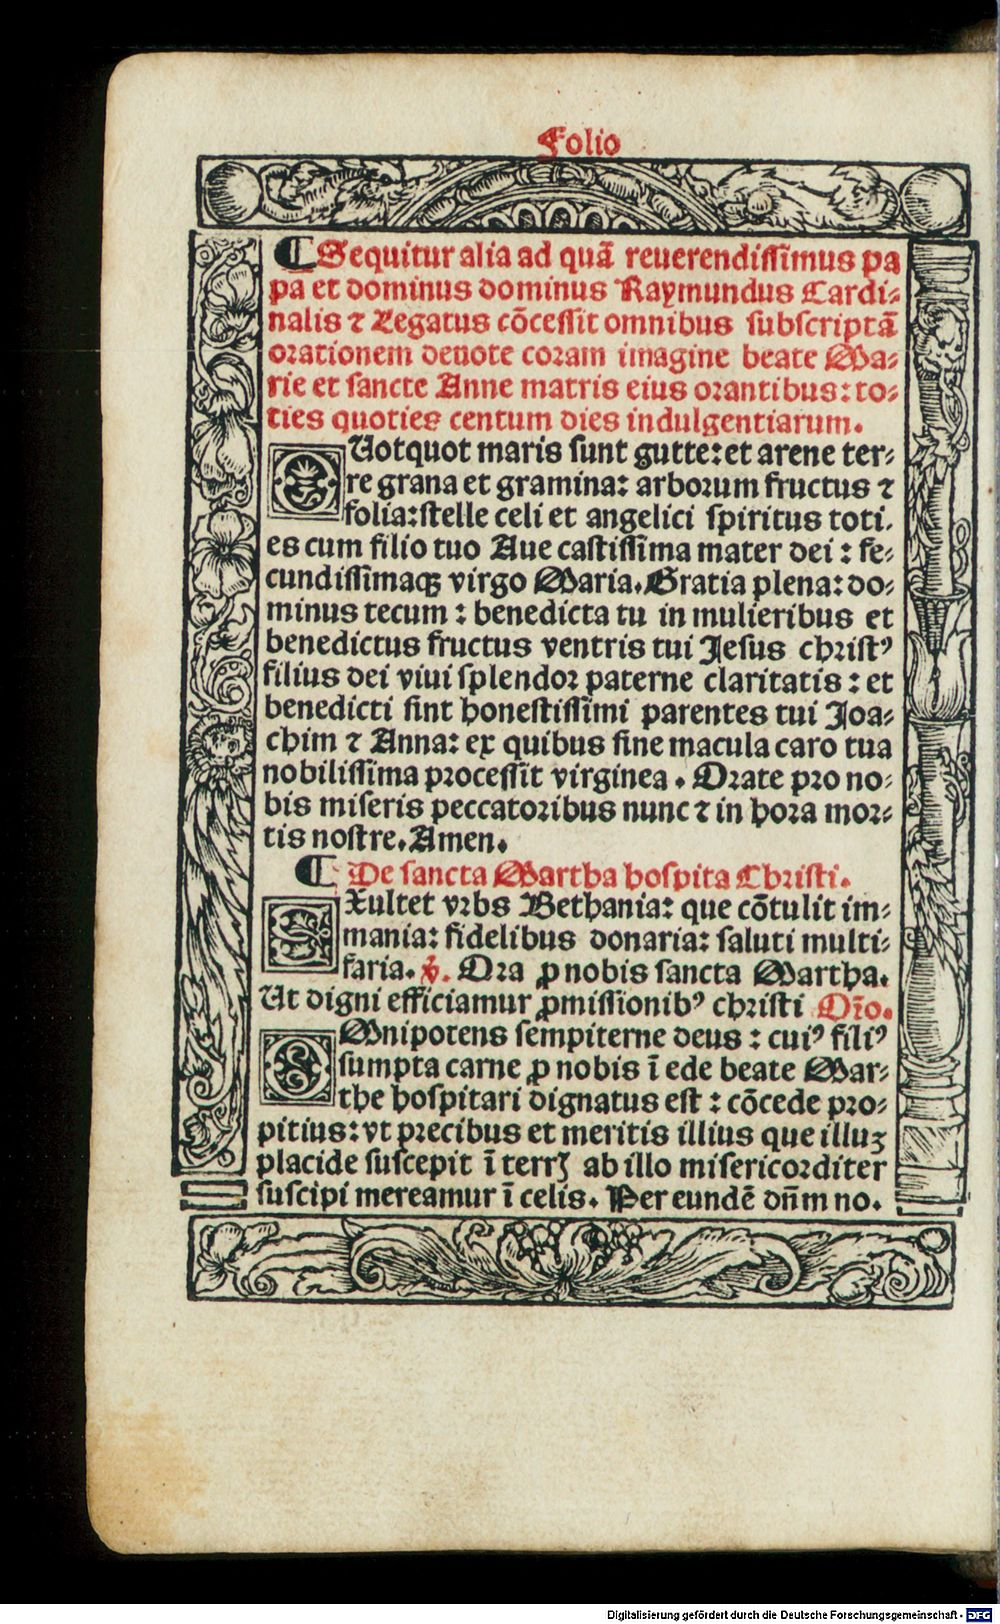 Folio
¶ Sequitur alia ad quā reuerendissimus pa
pa et dominus dominus Raymundus Cardi⸗
nalis ⁊ Legatus cōcessit omnibus subscriptā
orationem deuote coram imagine beate Ma⸗
rie et sancte Anne matris eius orantibus: to⸗
ties quoties centum dies indulgentiarum.
QUotquot maris sunt gutte: et arene ter⸗
re grana et gramina: arborum fructus ⁊
folia: stelle celi et angelici spiritus toti⸗
es cum filio tuo Aue castissima mater dei: fe⸗
cundissimaqꝫ virgo Maria. Gratia plena: do⸗
minus tecum: benedicta tu in mulieribus et
benedictus fructus ventris tui Jesus christꝰ
filius dei viui splendor paterne claritatis: et
benedicti sint honestissimi parentes tui Joa⸗
chim ⁊ Anna: ex quibus sine macula caro tua
nobilissima processit virginea. Orate pro no⸗
bis miseris peccatoribus nunc ⁊ in hora mor⸗
tis nostre. Amen.
¶ De sancta Martha hospita Christi.
EXultet vrbs Bethania: que cōtulit im⸗
mania: fidelibus donaria: saluti multi⸗
faria. ℣. Ora ꝓ nobis sancta Martha.
Ut digni efficiamur ꝓmissionibꝰ christi Oīo.
OMnipotens sempiterne deus: cuiꝰ filiꝰ
sumpta carne ꝓ nobis ī ede beate Mar⸗
the hospitari dignatus est: cōcede pro⸗
pitius: vt precibus et meritis illius que illuꝫ
placide suscepit ī terrꝭ ab illo misericorditer
suscipi mereamur ī celis. Per eundē dn̄m no.
Digitalisierung gefördert durch die Deutsche Forschungsgemeinschaft - DFG